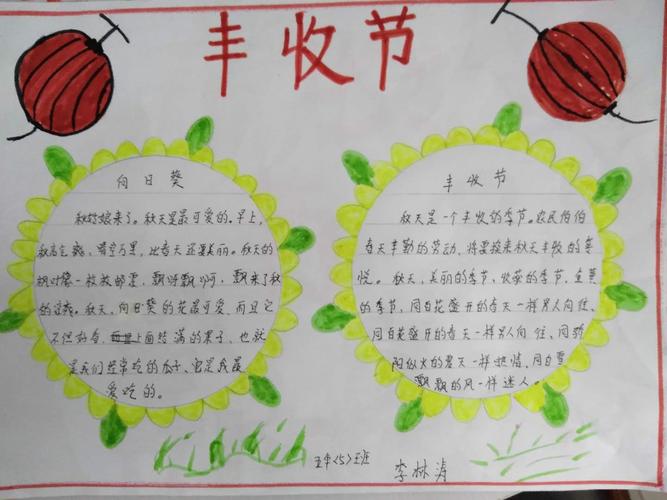 丰收节
向日葵
秋姑娘来了。秋天是最可爱的。早上，
秋高气爽，晴空万里，比春天还要美丽。秋天的
枫叶像一枚枚邮票，飘呀飘啊，飘来了秋
的凉爽。秋天，向日葵的花最可爱，而且它
不但好看，上面结满的果子，也就
是我们经常吃的瓜子，也是我最
爱吃的。
丰收节
秋天是一个丰收的季节。农民伯伯
春天辛勤的劳动，将要换来秋天丰收的喜
悦。秋天，美丽的季节，收获的季节，金黄
的季节，同百花盛开的春天一样另人向往，
同百花盛开的春天一样另人向往，同骄
阳似火的夏天一样热情，同白雪
飘飘的风一样迷人。
五年<5>班
李林涛